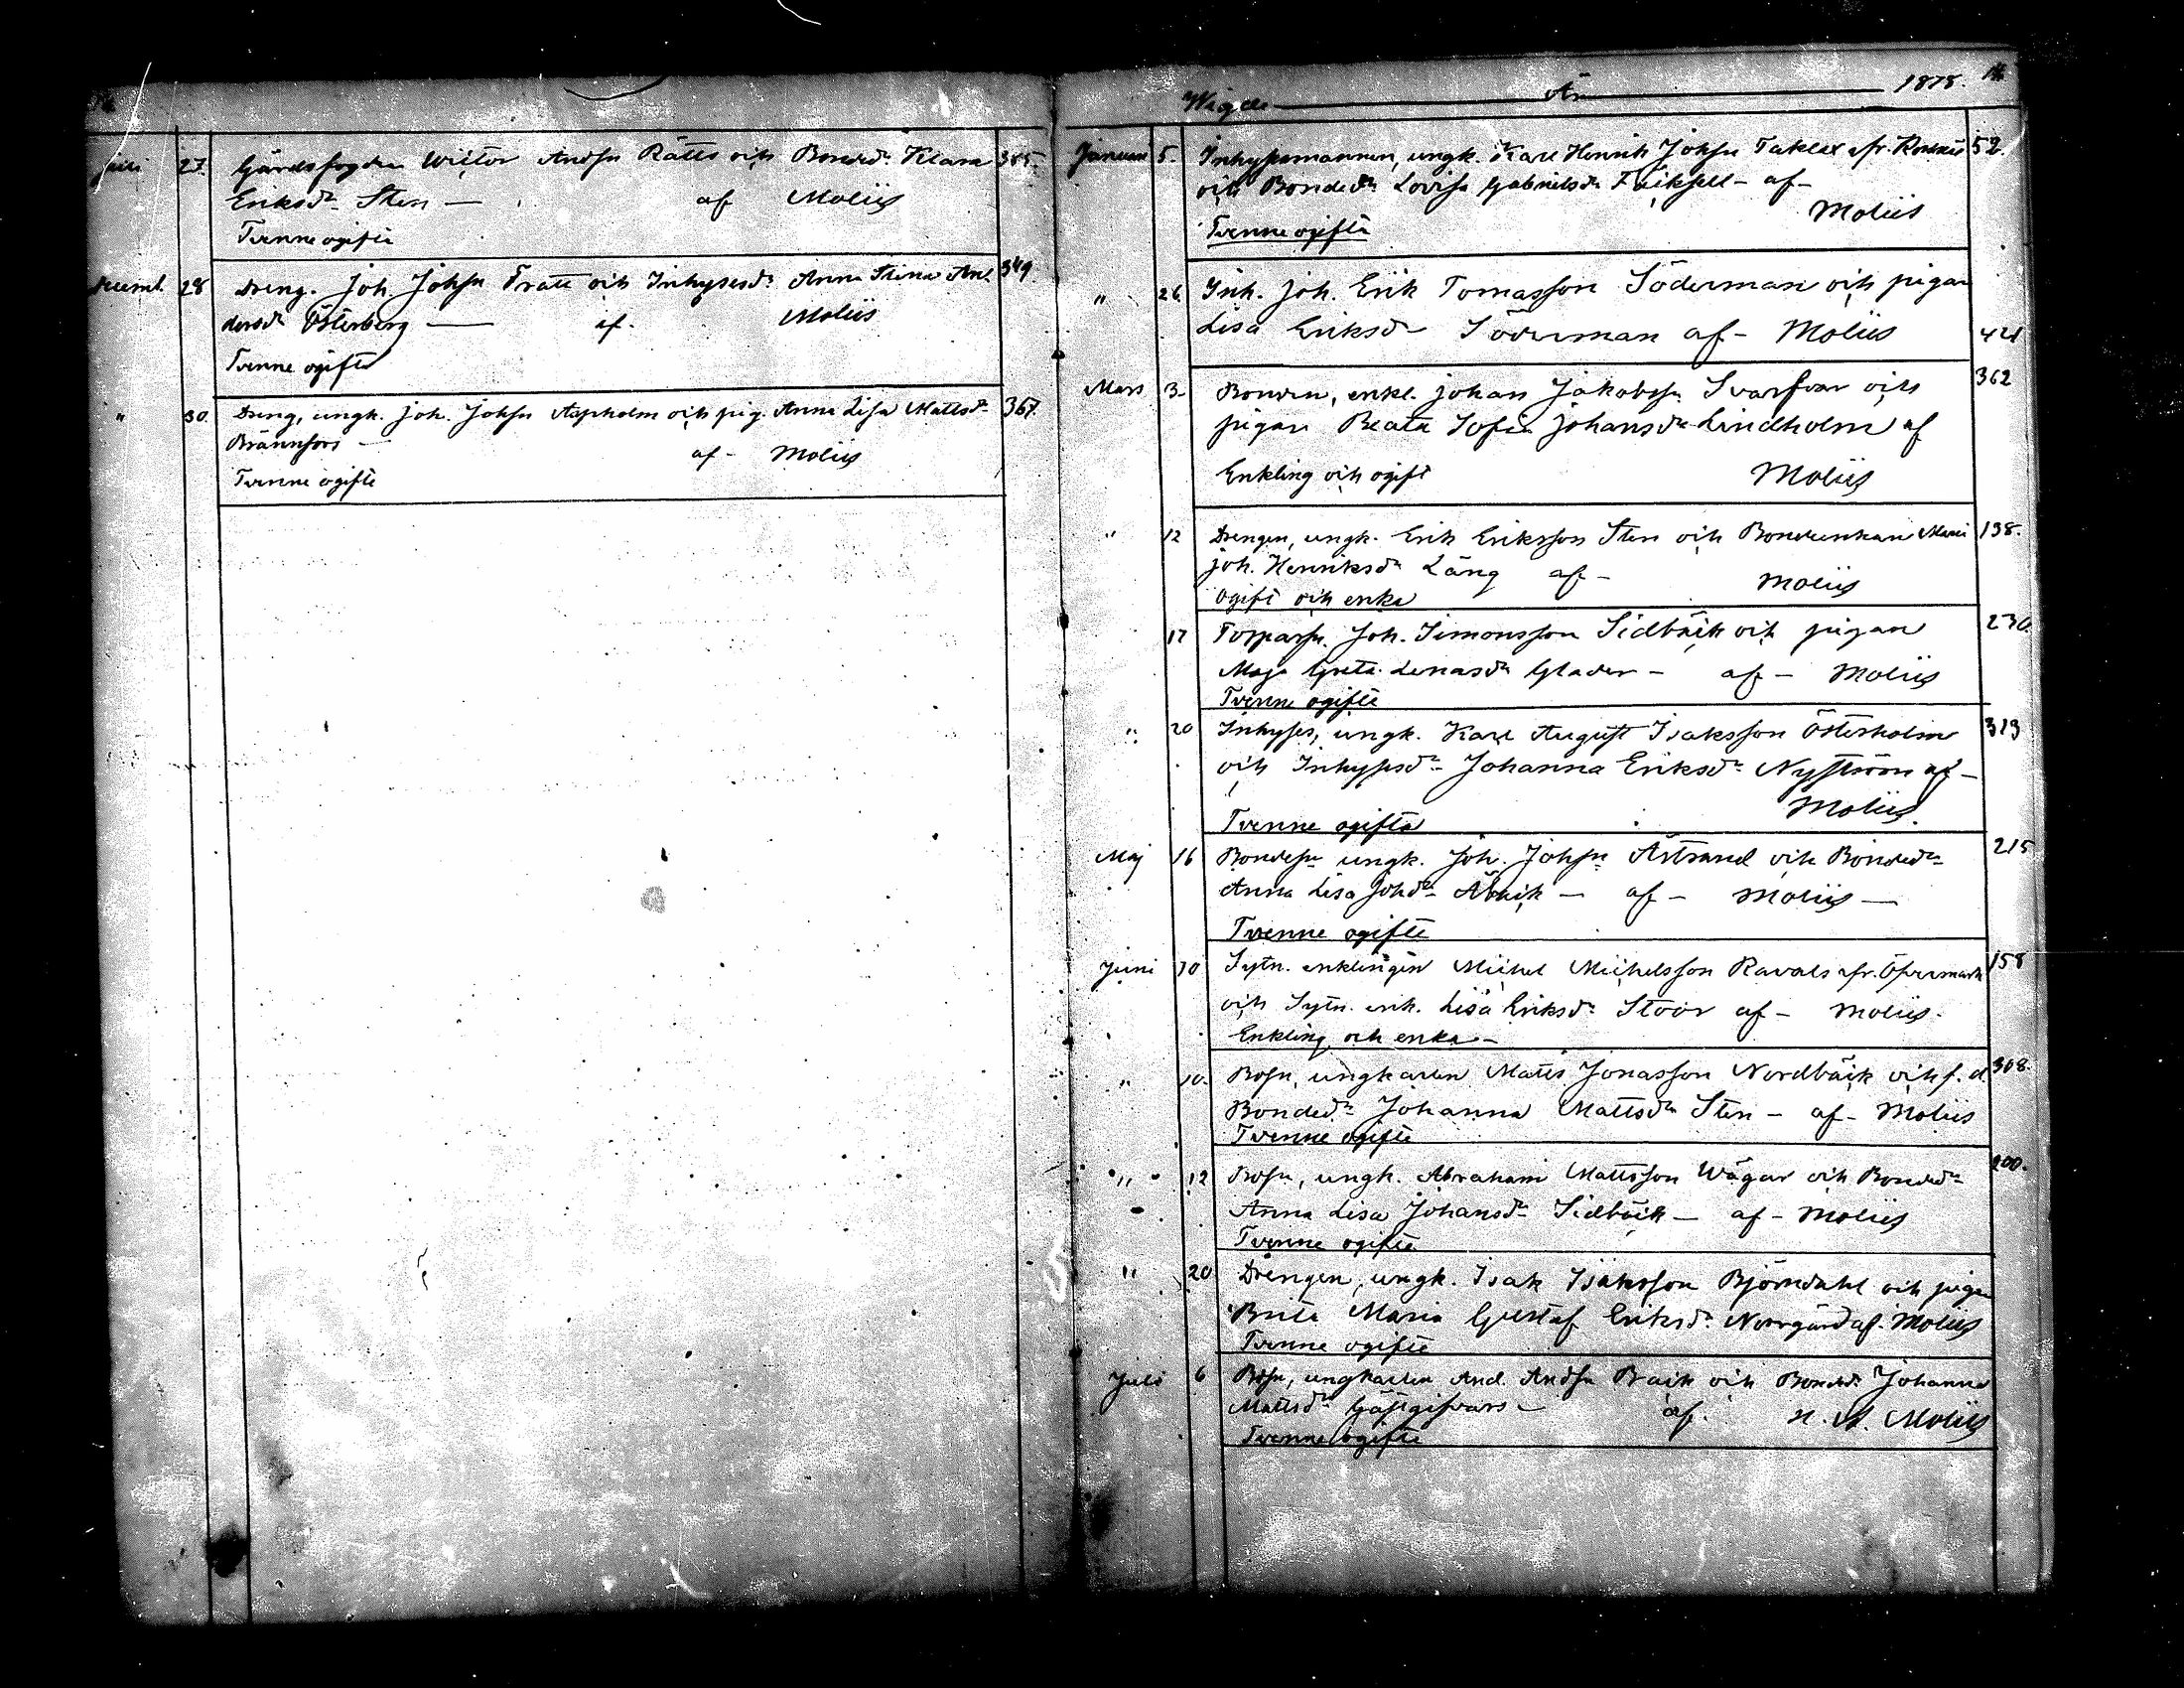 Juli 27. Gårdsfogden Wictor Andsn Rätts och Bonded. Klara 385.
Eriksdr Sten — af Moliis
Tvenne ogifta
Decemb. 28 Dreng. Joh. Johsn Fratt och Inhysesdr Anna Stina An- 349.
dersdr Österberg — af Moliis
Tvenne ogifta
" 30. Dreng, ungk. Joh. Johsn Aspholm och pig. Anna Lisa Mattsdr 367.
Brännfors — af - Moliis
Tvenne ogifta
Wigde År 1878.
Januari 5. Inhysesmannen, ungk. Karl Henrik Johsn fr. 52.
och Bondedr Lovisa Gabrielsdr - af -
Moliis
Tvenne ogifta
" 26. Inh. Joh. Erik Tomasson Söderman och pigan
Lisa Eriksdr Söderman af - Moliis 421
Mars 3. Bonden, enkl. Johan Jakobsn Svarfvar och 362
pigan Beata Sofia Johansdr Lindholm af
Enkling och ogift Moliis
" 12 Drengen, ungk. Erik Eriksson Sten och Bondeenkan Maria 138.
Joh. Henriksdr Lång af - Moliis
ogift och enka
17 Torparsn. Joh. Simonsson Sidbäck och pigan 230.
Maja Greta Lenasdr Glader - af - Moliis
Tvenne ogifta
" 20 Inhyses, ungk. Karl August Isaksson Österholm 313
och Inhysesdr Johanna Eriksdr Nyström af -
Moliis.
Tvenne ogifta
Maj 16 Bondesn ungk. Joh. Johsn Åstrand och Bondedr 215
Anna Lisa Johdr Åbäck - af - Moliis —
Tvenne ogifta
Juni 10 Sytn. enklingen Michel Michelsson Ravals fr. Öfvermark 158
och Sytn. enk. Lisa Eriksdr Stoor af - Moliis.
Enkling och enka -
" 10. Bosn, ungkarlen Matts Jonasson Nordbäck och f. d. 308.
Bondedr Johanna Mattsdr Sten - af - Moliis
Tvenne ogifta
" 12 Bosn, ungk. Abraham Mattsson Wägar och Bondedr 200.
Anna Lisa Johansdr Sidbäck - af - Moliis
Tvenne ogifta
" 20 Drengen, ungk. Isak Isaksson Björndahl och pigan
Brita Maria Gustaf Eriksdr Norrgård af. Moliis
Tvenne ogifta
Juli 6 Bosn, ungkarlen And. Andsn Bäck och Bonded. Johanna
Mattsdr Gästgifvars - af. Moliis
Tvenne ogifta